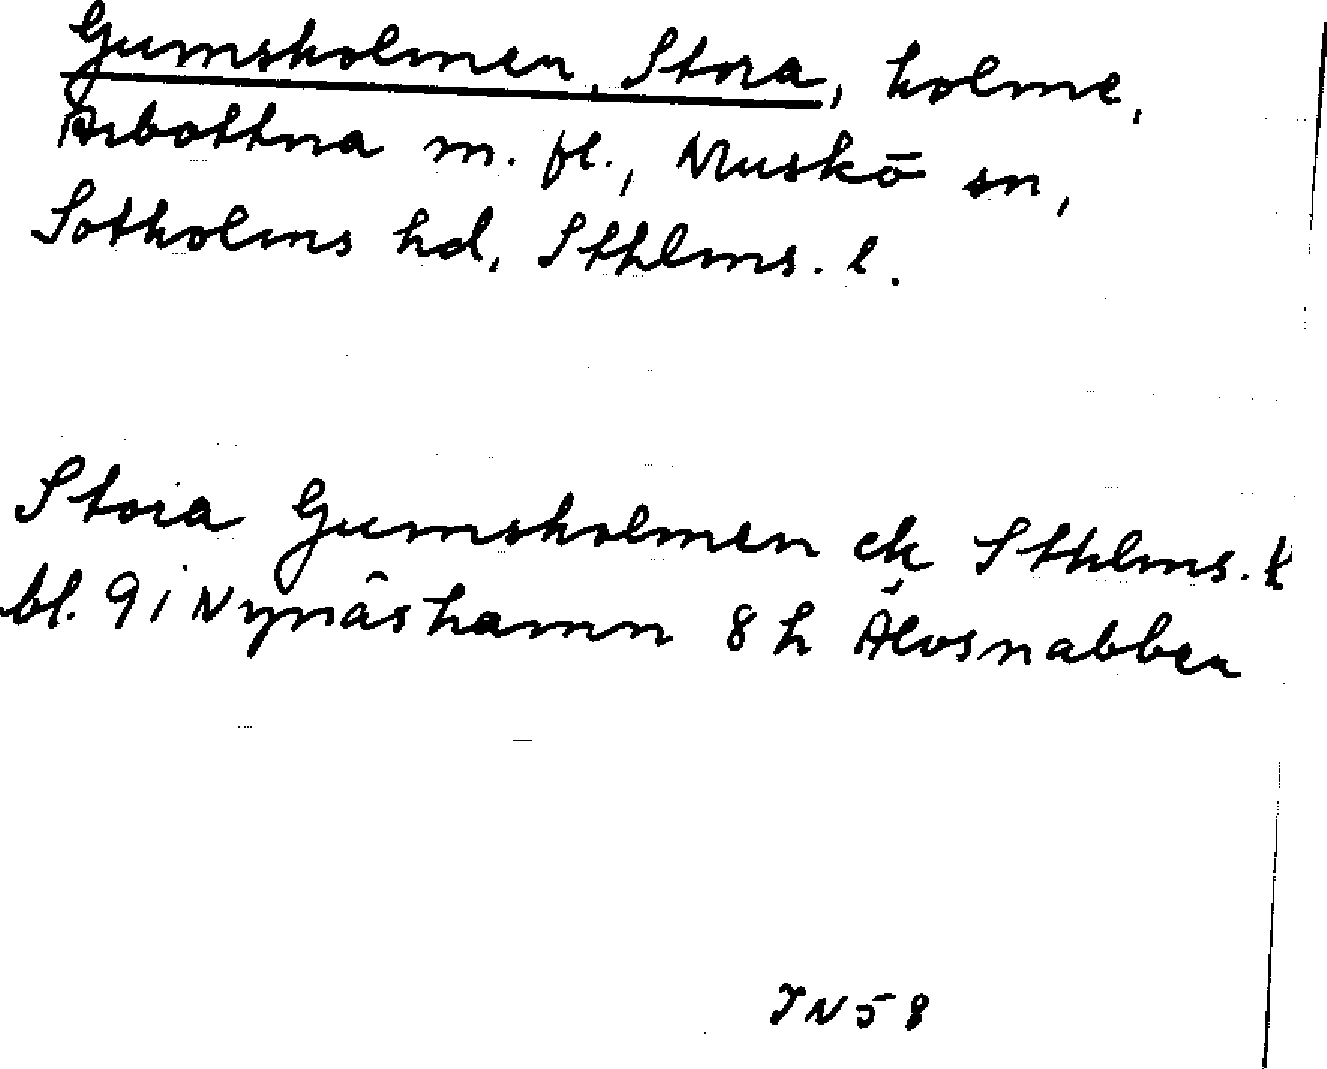 Gumsholmen, Stora, holme,
Arbottna m. fl., Muskö sn,
Sotholms hd, Sthlms. l.
Stora Gumsholmen ek Sthlms. k
bl. 9 i Nynäshamn 8 h Älvsnabben
JN 58